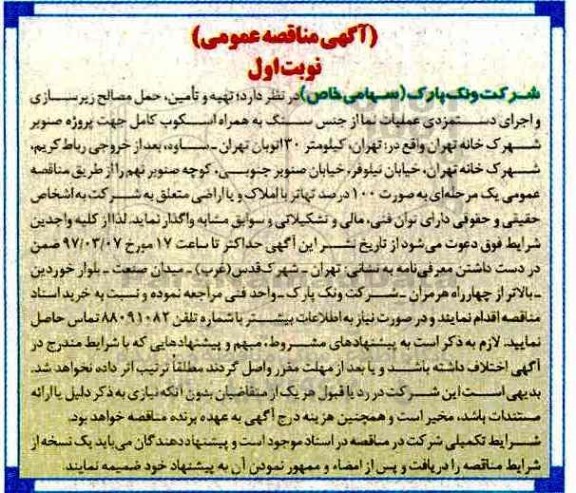 (آگهی مناقصه عمومی)
نوبت اول
شرکت ونک پارک (سهامی خاص) در نظر دارد؛ تهیه و تأمین، حمل مصالح زیرسازی
و اجرای دستمزدی عملیات نما از جنس سنگ به همراه اسکوپ کامل جهت پروژه صنوبر
شهرک خانه تهران واقع در: تهران، کیلومتر ۳۰ اتوبان تهران ـ ساوه، بعد از خروجی رباط کریم،
شهرک خانه تهران، خیابان نیلوفر، خیابان صنوبر جنوبی، کوچه صنوبر نهم را از طریق مناقصه
عمومی یک مرحله‌ای به صورت ۱۰۰ درصد تهاتر با املاک و یا اراضی متعلق به شرکت به اشخاص
حقیقی و حقوقی دارای توان فنی، مالی و تشکیلاتی و سوابق مشابه واگذار نماید. لذا از کلیه واجدین
شرایط فوق دعوت می‌شود از تاریخ نشر این آگهی حداکثر تا ساعت ۱۷ مورخ ۹۷/۰۳/۰۷ ضمن
در دست داشتن معرفی‌نامه به نشانی: تهران ـ شهرک قدس (غرب) ـ میدان صنعت ـ بلوار خوردین
ـ بالاتر از چهارراه هرمزان ـ شرکت ونک پارک ـ واحد فنی مراجعه نموده و نسبت به خرید اسناد
مناقصه اقدام نمایند و در صورت نیاز به اطلاعات بیشتر با شماره تلفن ۸۸۰۹۱۰۸۲ تماس حاصل
نمایید. لازم به ذکر است به پیشنهادهای مشروط، مبهم و پیشنهادهایی که با شرایط مندرج در
آگهی اختلاف داشته باشند و یا بعد از مهلت مقرر واصل گردند مطلقاً ترتیب اثر داده نخواهد شد.
بدیهی است این شرکت در رد یا قبول هر یک از متقاضیان بدون آنکه نیازی به ذکر دلیل یا ارائه
مستندات باشد، مخیر است و همچنین هزینه درج آگهی به عهده برنده مناقصه خواهد بود.
شرایط تکمیلی شرکت در مناقصه در اسناد موجود است و پیشنهاددهندگان می‌باید یک نسخه از
شرایط مناقصه را دریافت و پس از امضاء و ممهور نمودن آن به پیشنهاد خود ضمیمه نمایند.